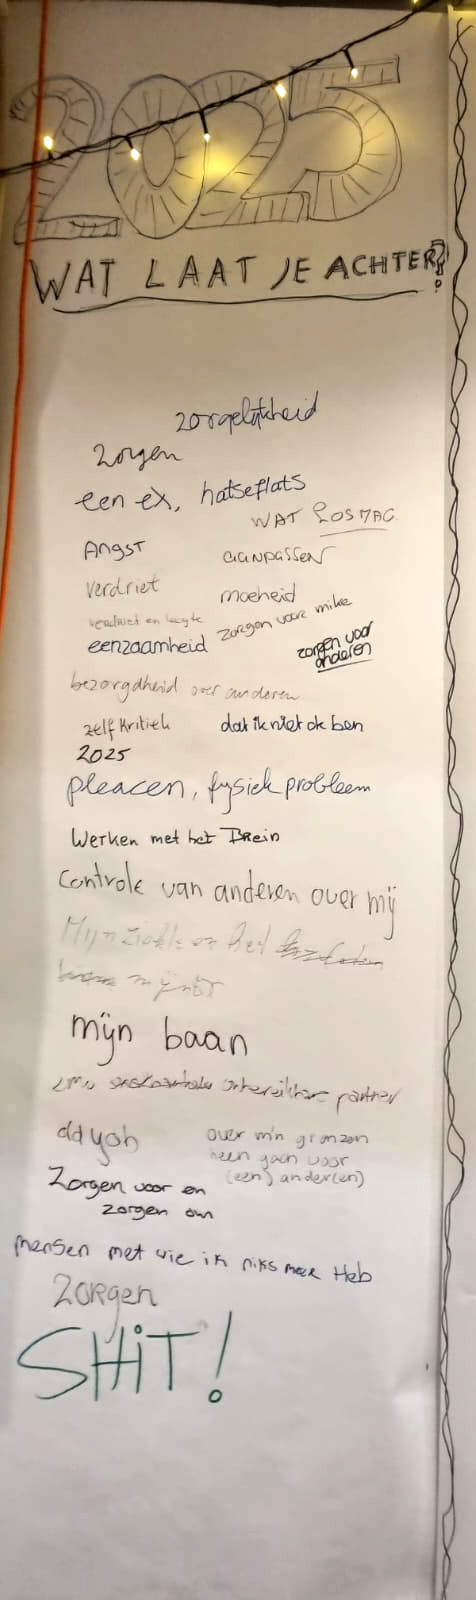 2025
WAT LAAT JE ACHTER?!
zorgelijkheid
Zorgen
een ex, hatseflats
WAT LOS MAG.
ANGST
aanpassen
verdriet
moeheid
verdriet en
zorgen voor mike
eenzaamheid
zorgen voor
anderen
bezorgdheid over anderen
zelfkritiek
dat ik niet ok ben
2025
pleacen, fysiek probleem
Werken met het Brein
Controle van anderen over mij
Mijn ziekte en het
mijn baan
partner
ddyoh
over m'n grenzen
heen gaan voor
(een) ander(en)
Zorgen voor en
zorgen om
mensen met wie ik niks meer Heb
Zorgen
SHiT!